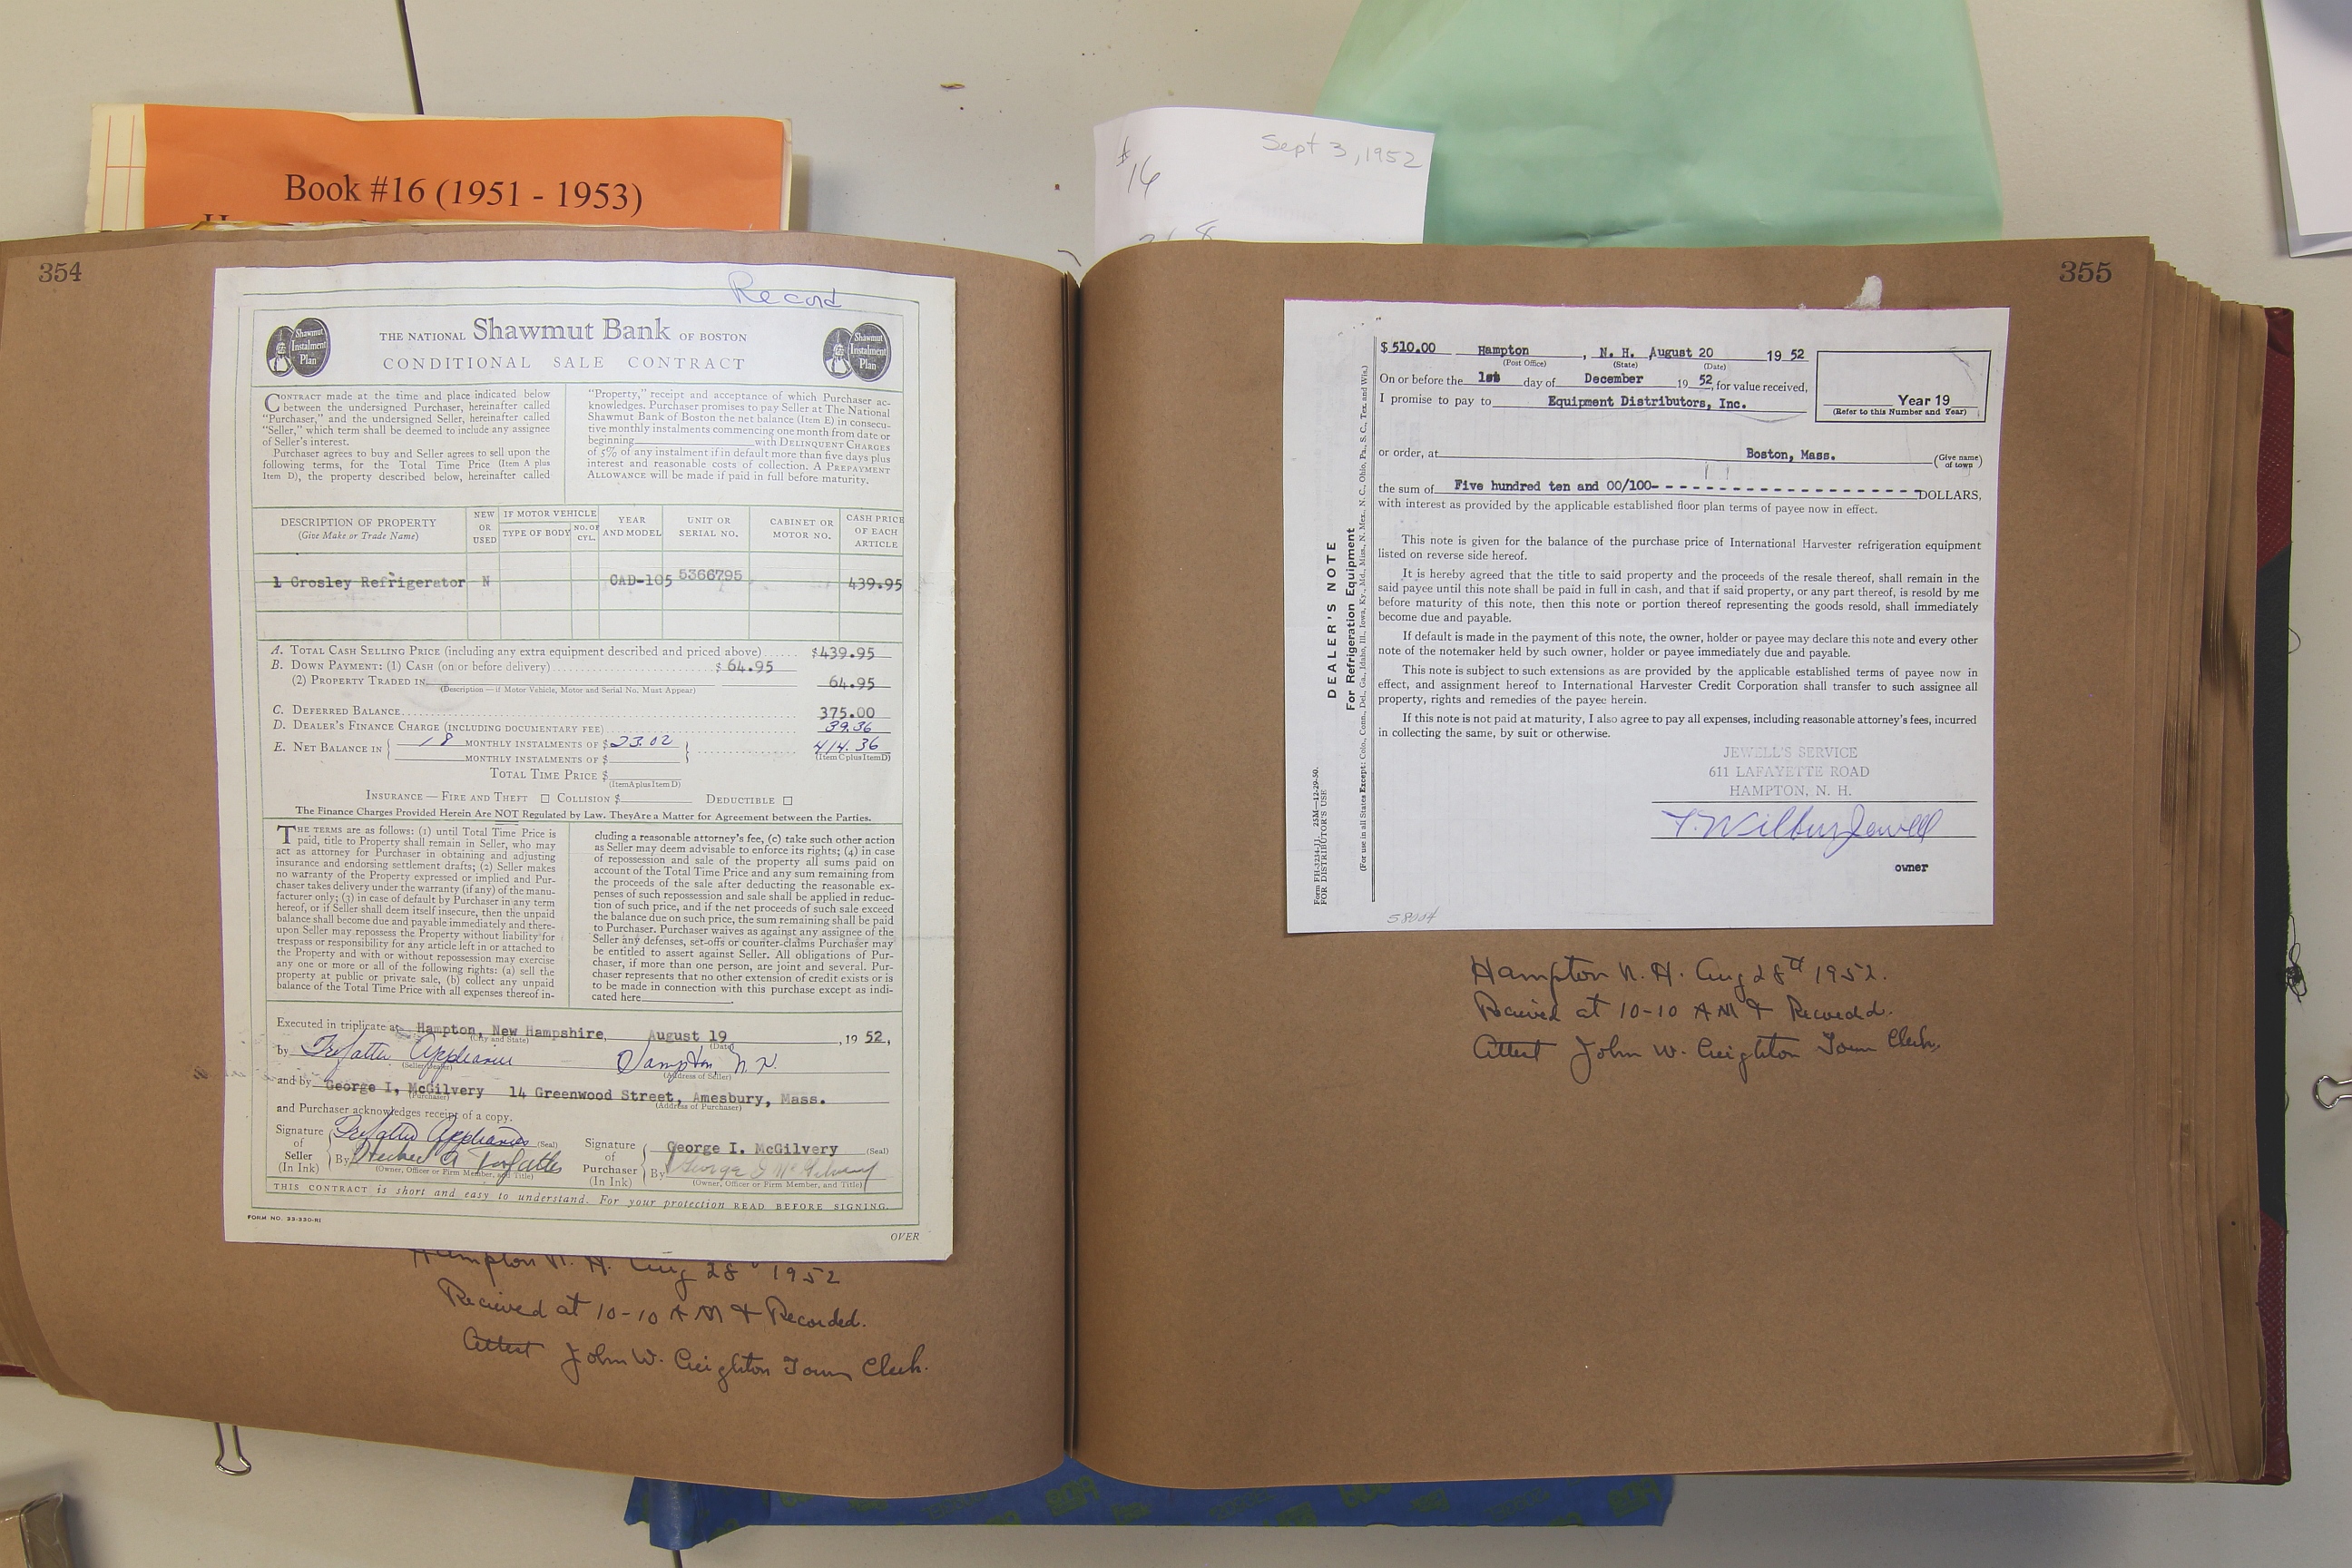 Book #16 (1951 - 1953)
Sept 3, 1952
#
16
354
Record
Shawmut
Instalment
Plan
THE NATIONAL Shawmut Bank OF BOSTON
CONDITIONAL SALE CONTRACT
Shawmut
Instalment
Plan
CONTRACT made at the time and place indicated below
between the undersigned Purchaser, hereinafter called
"Purchaser," and the undersigned Seller, hereinafter called
"Seller," which term shall be deemed to include any assignee
of Seller's interest.
Purchaser agrees to buy and Seller agrees to sell upon the
following terms, for the Total Time Price (Item A plus
Item D), the property described below, hereinafter called
"Property," receipt and acceptance of which Purchaser ac-
knowledges. Purchaser promises to pay Seller at The National
Shawmut Bank of Boston the net balance (Item E) in consecu-
tive monthly instalments commencing one month from date or
beginning with DELINQUENT CHARGES
of 5% of any instalment if in default more than five days plus
interest and reasonable costs of collection. A PREPAYMENT
ALLOWANCE will be made if paid in full before maturity.
DESCRIPTION OF PROPERTY
(Give Make or Trade Name)
NEW
OR
USED
IF MOTOR VEHICLE
TYPE OF BODY
NO. OF
CYL.
YEAR
AND MODEL
UNIT OR
SERIAL NO.
CABINET OR
MOTOR NO.
CASH PRICE
OF EACH
ARTICLE
1 Crosley Refrigerator N CAD-105 5366795 439.95
A. TOTAL CASH SELLING PRICE (including any extra equipment described and priced above) $439.95
B. DOWN PAYMENT: (1) CASH (on or before delivery) $ 64.95
(2) PROPERTY TRADED IN 64.95
(Description — if Motor Vehicle, Motor and Serial No. Must Appear)
C. DEFERRED BALANCE 375.00
D. DEALER'S FINANCE CHARGE (INCLUDING DOCUMENTARY FEE) 39.36
E. NET BALANCE IN { 18 MONTHLY INSTALMENTS OF $ 23.02 } 414.36
MONTHLY INSTALMENTS OF $ (Item C plus Item D)
TOTAL TIME PRICE $
(Item A plus Item D)
INSURANCE — FIRE AND THEFT □ COLLISION $ DEDUCTIBLE □
The Finance Charges Provided Herein Are NOT Regulated by Law. They Are a Matter for Agreement between the Parties.
THE TERMS are as follows: (1) until Total Time Price is
paid, title to Property shall remain in Seller, who may
act as attorney for Purchaser in obtaining and adjusting
insurance and endorsing settlement drafts; (2) Seller makes
no warranty of the Property expressed or implied and Pur-
chaser takes delivery under the warranty (if any) of the manu-
facturer only; (3) in case of default by Purchaser in any term
hereof, or if Seller shall deem itself insecure, then the unpaid
balance shall become due and payable immediately and there-
upon Seller may repossess the Property without liability for
trespass or responsibility for any article left in or attached to
the Property and with or without repossession may exercise
any one or more or all of the following rights: (a) sell the
property at public or private sale, (b) collect any unpaid
balance of the Total Time Price with all expenses thereof in-
cluding a reasonable attorney's fee, (c) take such other action
as Seller may deem advisable to enforce its rights; (4) in case
of repossession and sale of the property all sums paid on
account of the Total Time Price and any sum remaining from
the proceeds of the sale after deducting the reasonable ex-
penses of such repossession and sale shall be applied in reduc-
tion of such price, and if the net proceeds of such sale exceed
the balance due on such price, the sum remaining shall be paid
to Purchaser. Purchaser waives as against any assignee of the
Seller any defenses, set-offs or counter-claims Purchaser may
be entitled to assert against Seller. All obligations of Pur-
chaser, if more than one person, are joint and several. Pur-
chaser represents that no other extension of credit exists or is
to be made in connection with this purchase except as indi-
cated here
Executed in triplicate at Hampton, New Hampshire, August 19, 1952,
(City and State) (Date)
by Trefatter Appliances Hampton, N.H.
(Seller-Dealer) (Address of Seller)
and by George I, McGilvery 14 Greenwood Street, Amesbury, Mass.
(Purchaser) (Address of Purchaser)
and Purchaser acknowledges receipt of a copy.
Signature
of
Seller
(In Ink)
Trefatter Appliances (Seal)
By
(Owner, Officer or Firm Member, and Title)
Signature
of
Purchaser
(In Ink)
George I. McGilvery (Seal)
By George I McGilvery
(Owner, Officer or Firm Member, and Title)
THIS CONTRACT is short and easy to understand. For your protection READ BEFORE SIGNING.
FORM NO. 33-330-RI
OVER
Hampton N. H. Aug 28 1952
Recieved at 10-10 AM & Recorded.
Attest John W. Creighton Town Clerk.
355
DEALER'S NOTE
For Refrigeration Equipment
(For use in all States Except: Colo., Conn., Del., Ga., Idaho, Ill., Iowa, Ky., Md., Miss., N. Mex., N. C., Ohio, Pa., S. C., Tex. and Wis.)
Form FH-3234-JJ. 25M—12-29-50.
FOR DISTRIBUTOR'S USE
$ 510.00 Hampton, N. H. August 20 19 52
(Post Office) (State) (Date)
On or before the 1st day of December 19 52, for value received,
I promise to pay to Equipment Distributors, Inc.
Year 19
(Refer to this Number and Year)
or order, at Boston, Mass. (Give name of town)
the sum of Five hundred ten and 00/100- - - - - - - - - - - - - - - - - - - DOLLARS,
with interest as provided by the applicable established floor plan terms of payee now in effect.
This note is given for the balance of the purchase price of International Harvester refrigeration equipment
listed on reverse side hereof.
It is hereby agreed that the title to said property and the proceeds of the resale thereof, shall remain in the
said payee until this note shall be paid in full in cash, and that if said property, or any part thereof, is resold by me
before maturity of this note, then this note or portion thereof representing the goods resold, shall immediately
become due and payable.
If default is made in the payment of this note, the owner, holder or payee may declare this note and every other
note of the notemaker held by such owner, holder or payee immediately due and payable.
This note is subject to such extensions as are provided by the applicable established terms of payee now in
effect, and assignment hereof to International Harvester Credit Corporation shall transfer to such assignee all
property, rights and remedies of the payee herein.
If this note is not paid at maturity, I also agree to pay all expenses, including reasonable attorney's fees, incurred
in collecting the same, by suit or otherwise.
JEWELL'S SERVICE
611 LAFAYETTE ROAD
HAMPTON, N. H.
Wilbur Jewell
owner
Hampton N. H. Aug 28th 1952.
Recieved at 10-10 AM & Recorded.
Attest John W. Creighton Town Clerk.